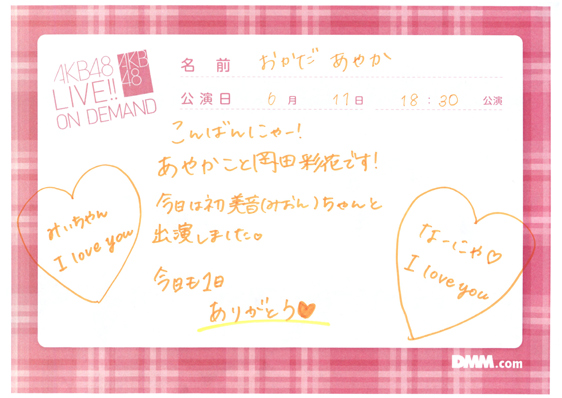 AKB48
LIVE!!
ON DEMAND
AKB
48
名前 おかだ あやか
公演日 6月 11日 18:30 公演
こんばんにゃー!
あやかこと岡田彩花です!
今日は初美音(みおん)ちゃんと
出演しました♡
今日も1日
ありがとう♥
みいちゃん
I love you
なーにゃ♡
I love you
DMM.com